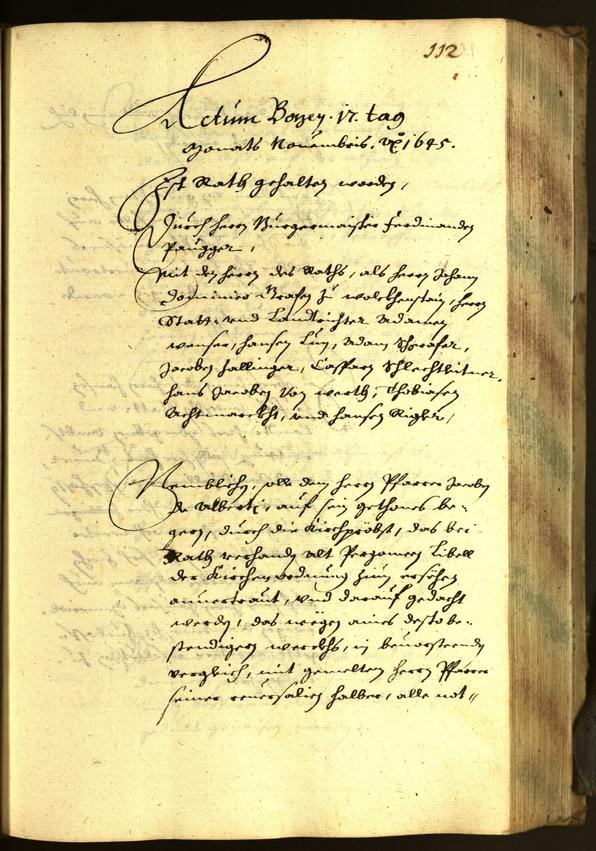 112
Actum Bozen. 17. tag
Monats Nouembris. 1645.
Ist Rath gehalten worden,
Durch herrn Burgermaister Ferdinanden
Paugger,
Mit den herrn des Raths, als herrn Johann
Dominico Grafen zu Wolckhenstain, herrn
Statt- vnd Landrichter Adamen
Wenser, hansen Lun, Adam Schrofer,
Jacoben hallinger, Casparn Schlechtleitner,
hans Jacoben von Werth, Thobiasen
Achtmarckht, vnd hansen Rigler,
Nemblichen, solle dem herrn Pfarrer Jacoben
de Alberti, auf sein gethones be-
gern, durch die Kirchpröbst, das bei
Rath verhanden alt Pergamen Libell
der Kirchen ordnung zum ersehen
anuertraut, vnd darauf gedacht
werden, das wegen aines desto be-
stendigern werckhs, in beuorsteenden
vergleich, mit gemelten herrn Pfarrer
seiner reuersalien halber, alle not-